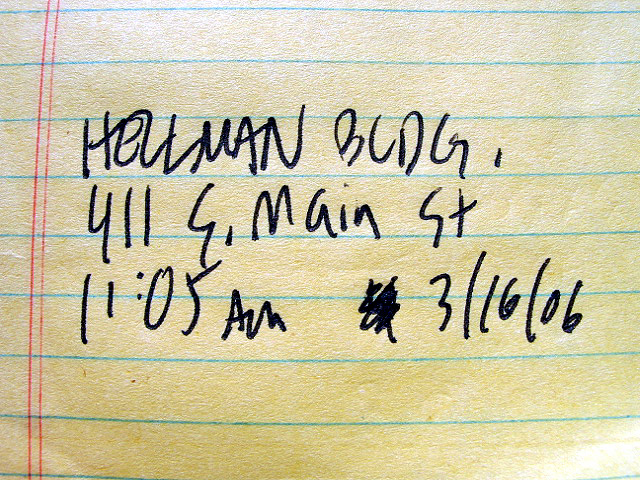 HELLMAN BLDG.
411 S. Main St
11:05 Am 3/16/06